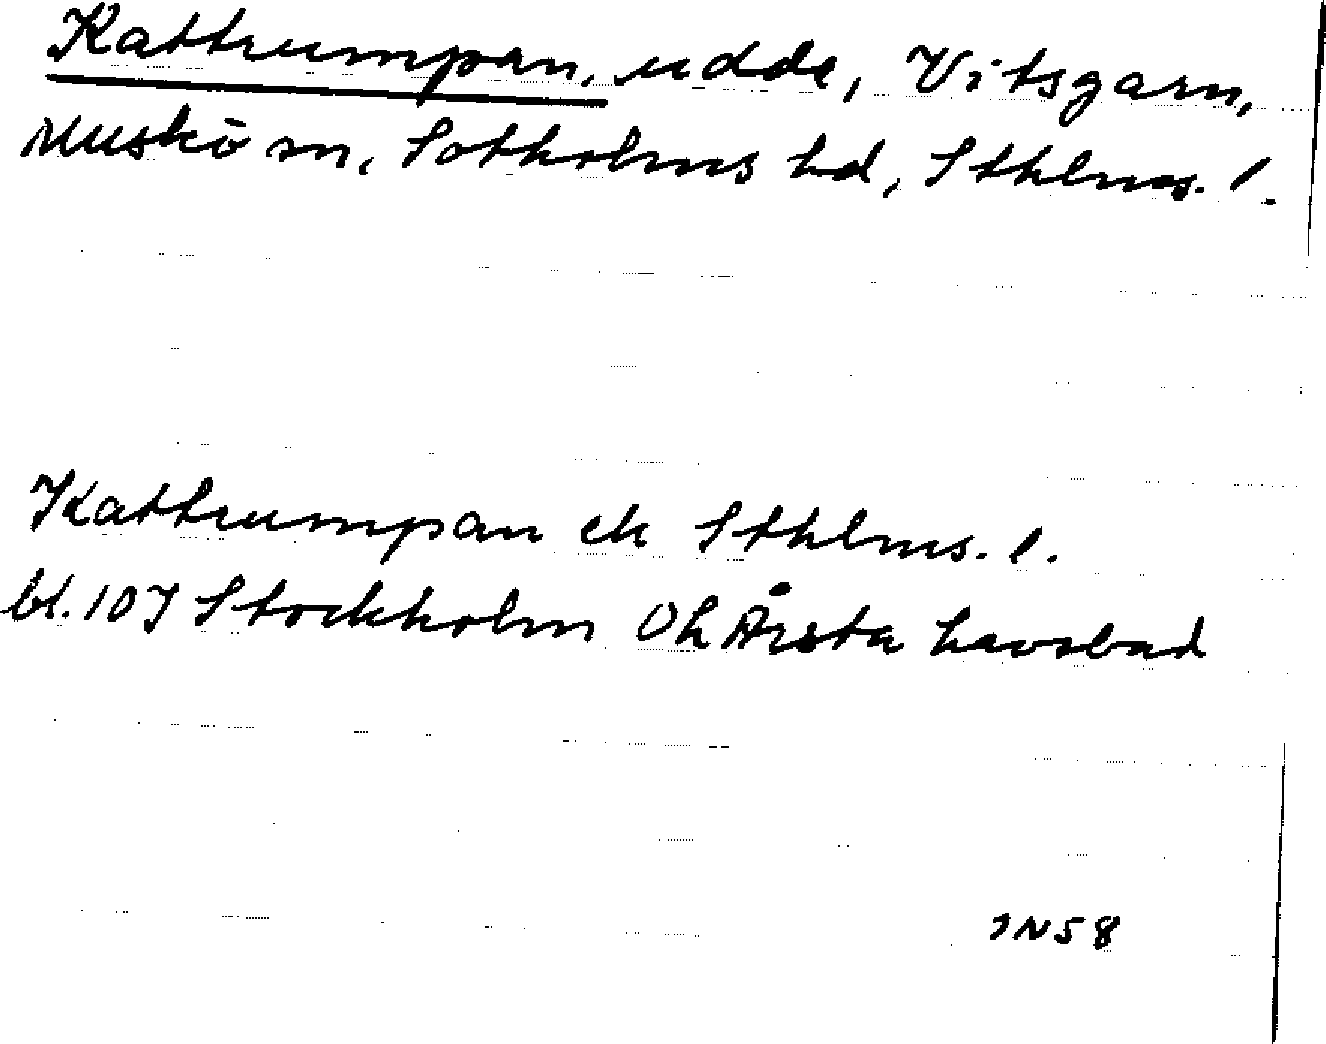 Kattrumpan, udde, Vitsgarn,
Muskö sn, Sotholms hd, Sthlms. l.
Kattrumpan ek Sthlms. l.
bl. 10J Stockholm Oh Årsta havsbad
JN58